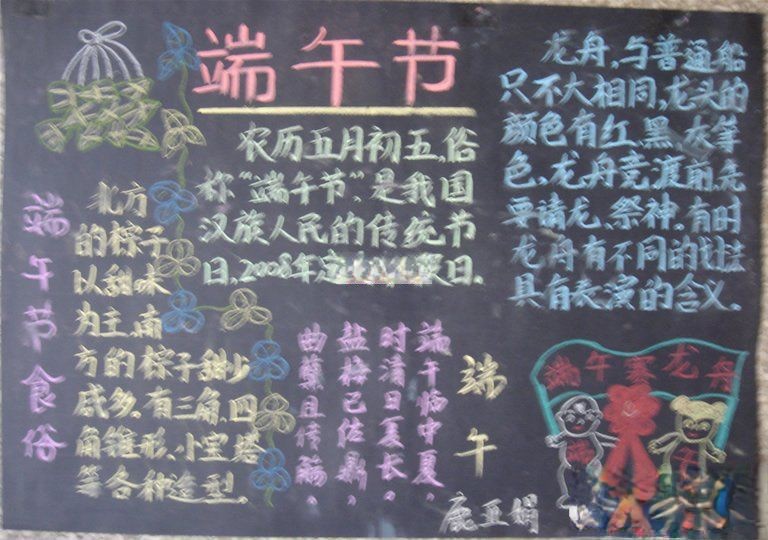 端午节
农历五月初五,俗
称“端午节”,是我国
汉族人民的传统节
日,2008年定
日。
龙舟,与普通船
只不大相同,龙头的
颜色有红、黑、灰等
色、龙舟竞渡前,先
要请龙、祭神。有时
龙舟有不同的划法
具有表演的含义。
端午节食俗
北方
的粽子
以甜味
为主,南
方的粽子甜少
咸多。有三角、四
角锥形、小宝塔
等各种造型。
端午
端午恰中夏,
时清日复长。
盐梅已佐鼎,
曲糵且传觞。
端午赛龙舟
鹿亚娟